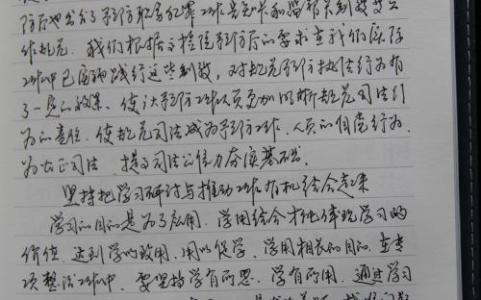 防厅也出台了预防职务犯罪工作
作规范。我们根据高检院预防厅的要求在我们实际
工作中已应确践行这些制度,对规范预防执法行为有
了一定的效果。使让预防工作人员更加明晰规范司法行
为的责任,使规范司法成为预防工作人员的自觉行为,
为公正司法、提高司法公信力夯实基础。
坚持把学习研讨与推动工作有机结合起来
学习的目的是为了应用,学用结合才能体现学习的
价值,达到学以致用、用以促学、学用相长的目的。在专
项整治工作中,要坚持学有所思、学有所用,通过学习